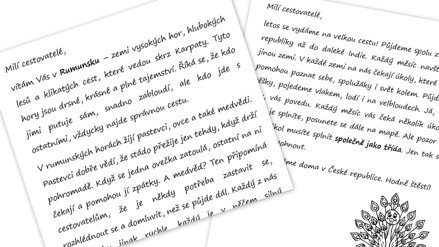 Milí cestovatelé,
vítám Vás v Rumunsku – zemi vysokých hor, hlubokých
lesů a klikatých cest, které vedou skrz Karpaty. Tyto
hory jsou drsné, krásné a plné tajemství. Říká se, že kdo
jimi putuje sám, snadno zabloudí, ale kdo jde s
ostatními, vždycky najde správnou cestu.
V rumunských horách žijí pastevci, ovce a také medvědi.
Pastevci dobře vědí, že stádo přežije jen tehdy, když drží
pohromadě. Když se jedna ovečka zatoulá, ostatní na ni
čekají a pomohou jí zpátky. A medvěd? Ten připomíná
cestovatelům, že je někdy potřeba zastavit se,
rozhlédnout se a domluvit, než se půjde dál. Každý z nás
jinak rychle, každý je v něčem silný
Milí cestovatelé,
letos se vydáme na velkou cestu! Půjdeme spolu z
republiky až do daleké Indie. Každý měsíc navšt
jinou zemi. V každé zemi na nás čekají úkoly, které
pomohou poznat sebe, spolužáky i svět kolem. Půjde
pěšky, pojedeme vlakem, lodí i na velbloudech. Já,
vás povedu. Každý měsíc vás čeká několik úko
je splníte, posunete se dále na mapě. Ale pozor
kol musíte splnit společně jako třída. Jen tak s
ohnout.
me doma v České republice. Hodně štěstí!